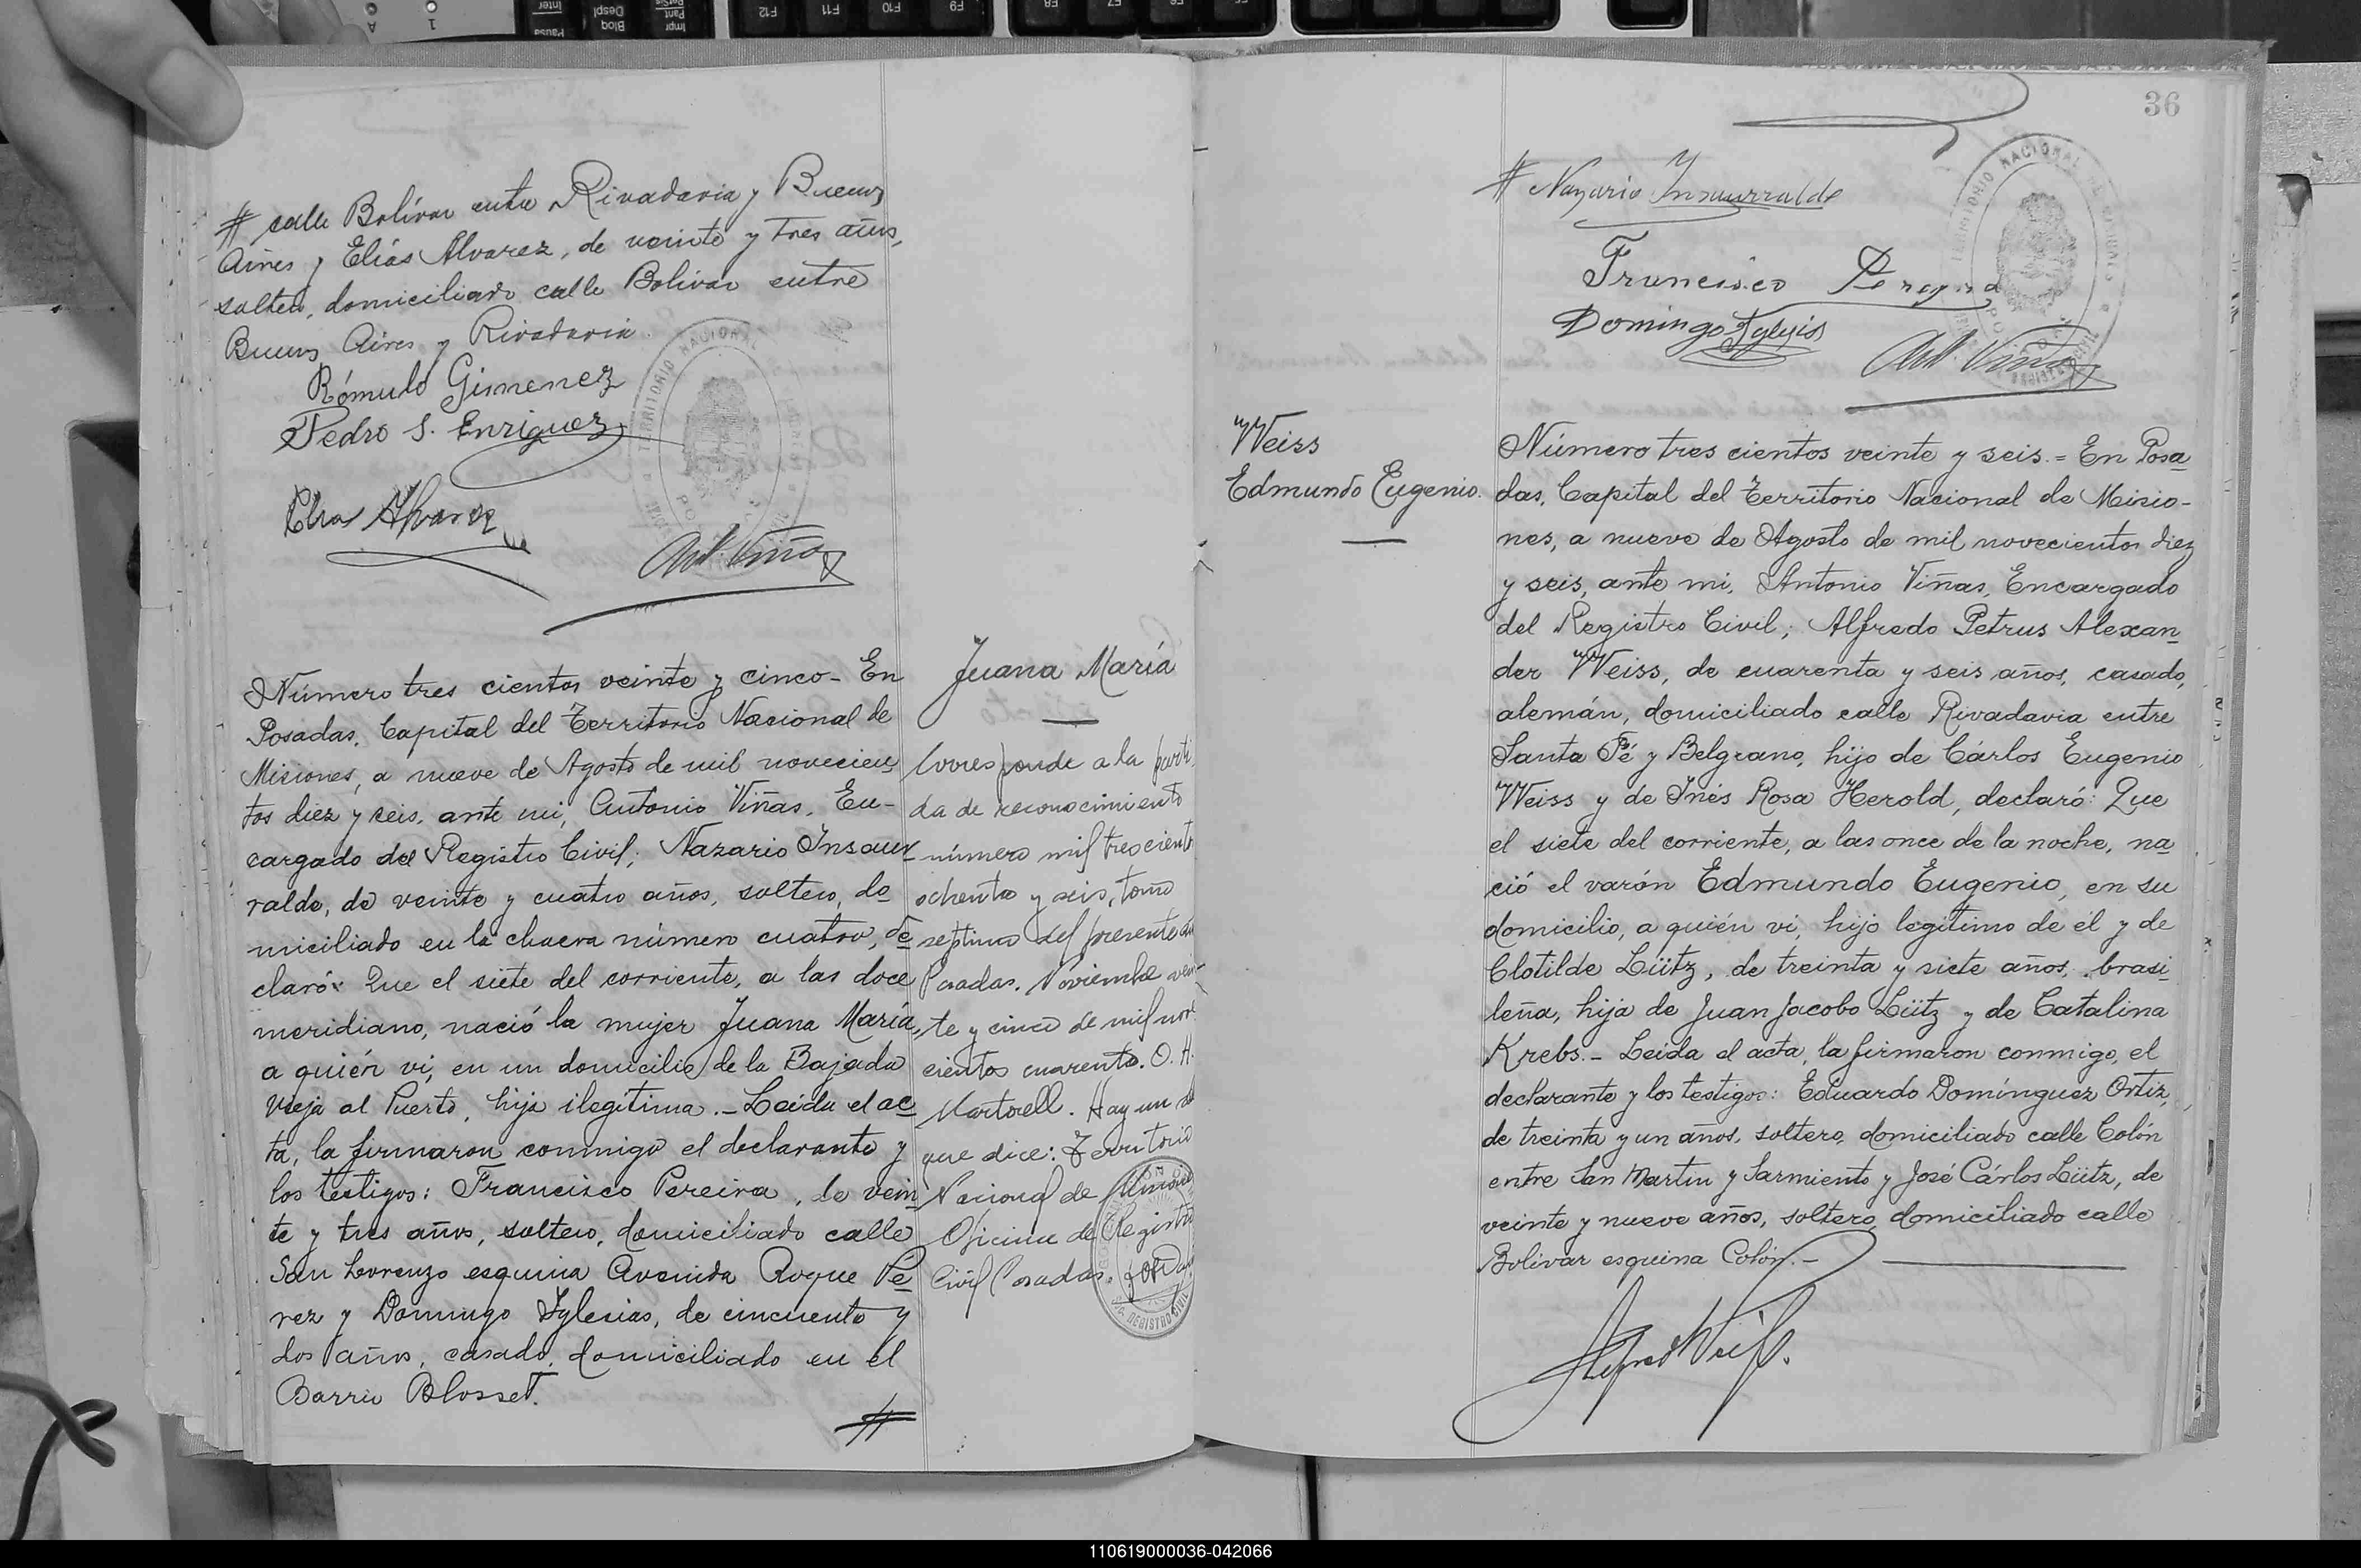 # calle Bolívar entre Rivadavia y Buenos
Aires y Elías Alvarez, de veinte y tres años,
soltero, domiciliado calle Bolívar entre
Buenos Aires y Rivadavia
Rómulo Gimenez
Pedro S. Enriguez
Elias Alvarez
Ant. Viñas
TERRITORIO NACIONAL
Número tres cientos veinte y cinco - En
Posadas, Capital del Territorio Nacional de
Misiones, a nueve de Agosto de mil novecien
tos diez y seis, ante mi, Antonio Viñas, En-
cargado del Registro Civil; Nazario Insaur
ralde, de veinte y cuatro años, soltero, do
miciliado en la chacra número cuatro, de
claró: Que el siete del corriente, a las doce
meridiano, nació la mujer Juana María,
a quién vi, en un domicilio de la Bajada
Vieja al Puerto, hija ilegítima. - Leida el ac
ta, la firmaron conmigo el declarante y
los testigos: Francisco Pereira, de vein
te y tres años, soltero, domiciliado calle
San Lorenzo esquina Avenida Roque Pé
rez y Domingo Iglesias, de cincuenta y
dos años, casado, domiciliado en el
Barrio Blosset.
#
Juana María
Corresponde a la parti
da de reconocimiento
número mil trescient
ochenta y seis, tomo
septimo del presente añ
Posadas. Noviembre vein-
te y cinco de mil nove
cientos cuarenta. O. H.
Martorell. Hay un
que dice: Territorio
Nacional de Misiones
Oficina de Registro
Civil Posadas.
REGISTRO CIVIL
36
# Nazario Insaurralde
Francisco
Domingo Iglesias
Ant. Viñas
TERRITORIO NACIONAL DE MISIONES
Weiss
Edmundo Eugenio.
Número tres cientos veinte y seis. = En Posa
das, Capital del Territorio Nacional de Misio-
nes, a nueve de Agosto de mil novecientos diez
y seis, ante mi, Antonio Viñas, Encargado
del Registro Civil; Alfredo Petrus Alexan
der Weiss, de cuarenta y seis años, casado,
alemán, domiciliado calle Rivadavia entre
Santa Fé y Belgrano, hijo de Cárlos Eugenio
Weiss y de Inés Rosa Herold, declaró: Que
el siete del corriente, a las once de la noche, na
ció el varón Edmundo Eugenio, en su
domicilio, a quién vi, hijo legítimo de él y de
Clotilde Lütz, de treinta y siete años, brasi
leña, hija de Juan Jacobo Lütz y de Catalina
Krebs. - Leida el acta, la firmaron conmigo, el
declarante y los testigos: Eduardo Domínguez Ortiz,
de treinta y un años, soltero, domiciliado calle Colón
entre San Martin y Sarmiento y José Cárlos Lütz, de
veinte y nueve años, soltero, domiciliado calle
Bolívar esquina Colón. -
110619000036-042066